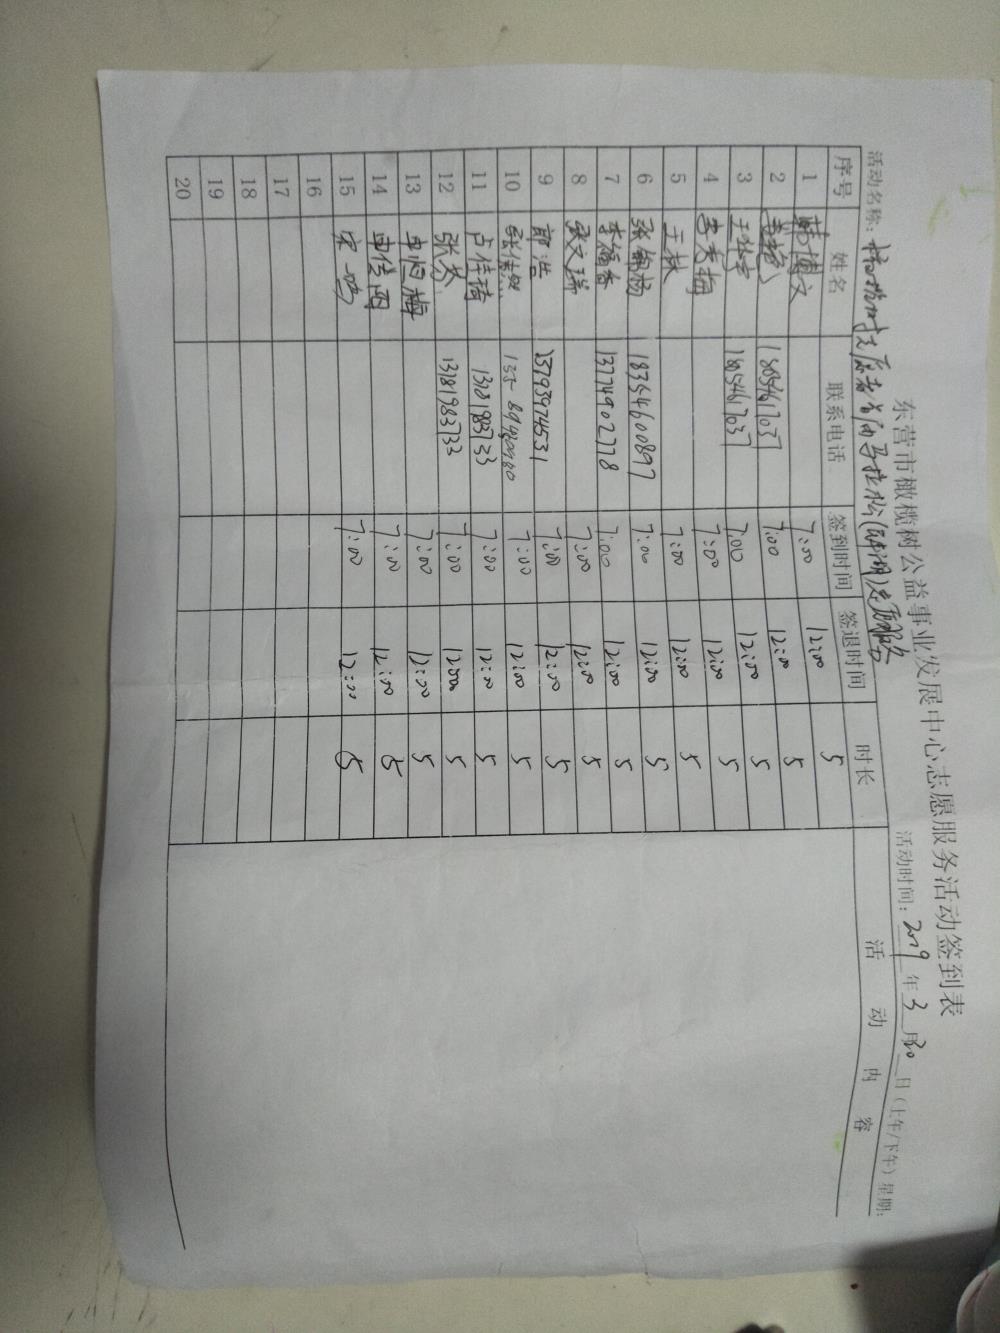 东营市橄榄树公益事业发展中心志愿服务活动签到表
活动名称: 活动时间: 2019 年 3 月 30 日 (上午/下午) 星期:
序号 姓名 联系电话 签到时间 签退时间 时长 活动内容
1 韩博文 7:00 12:00 5
2 18654617037 7:00 12:00 5
3 18654617037 7:00 12:00 5
4 李秀梅 7:00 12:00 5
5 王秋 7:00 12:00 5
6 张翰杨 18354600897 7:00 12:00 5
7 李福香 13774902778 7:00 12:00 5
8 张文瑞 7:00 12:00 5
9 郭浩 7:00 12:00 5
10 7:00 12:00 5
11 占佳琦 13181983733 7:00 12:00 5
12 张英 13181983733 7:00 12:00 5
13 7:00 12:00 5
14 7:00 12:00 5
15 7:00 12:00 5
16
17
18
19
20